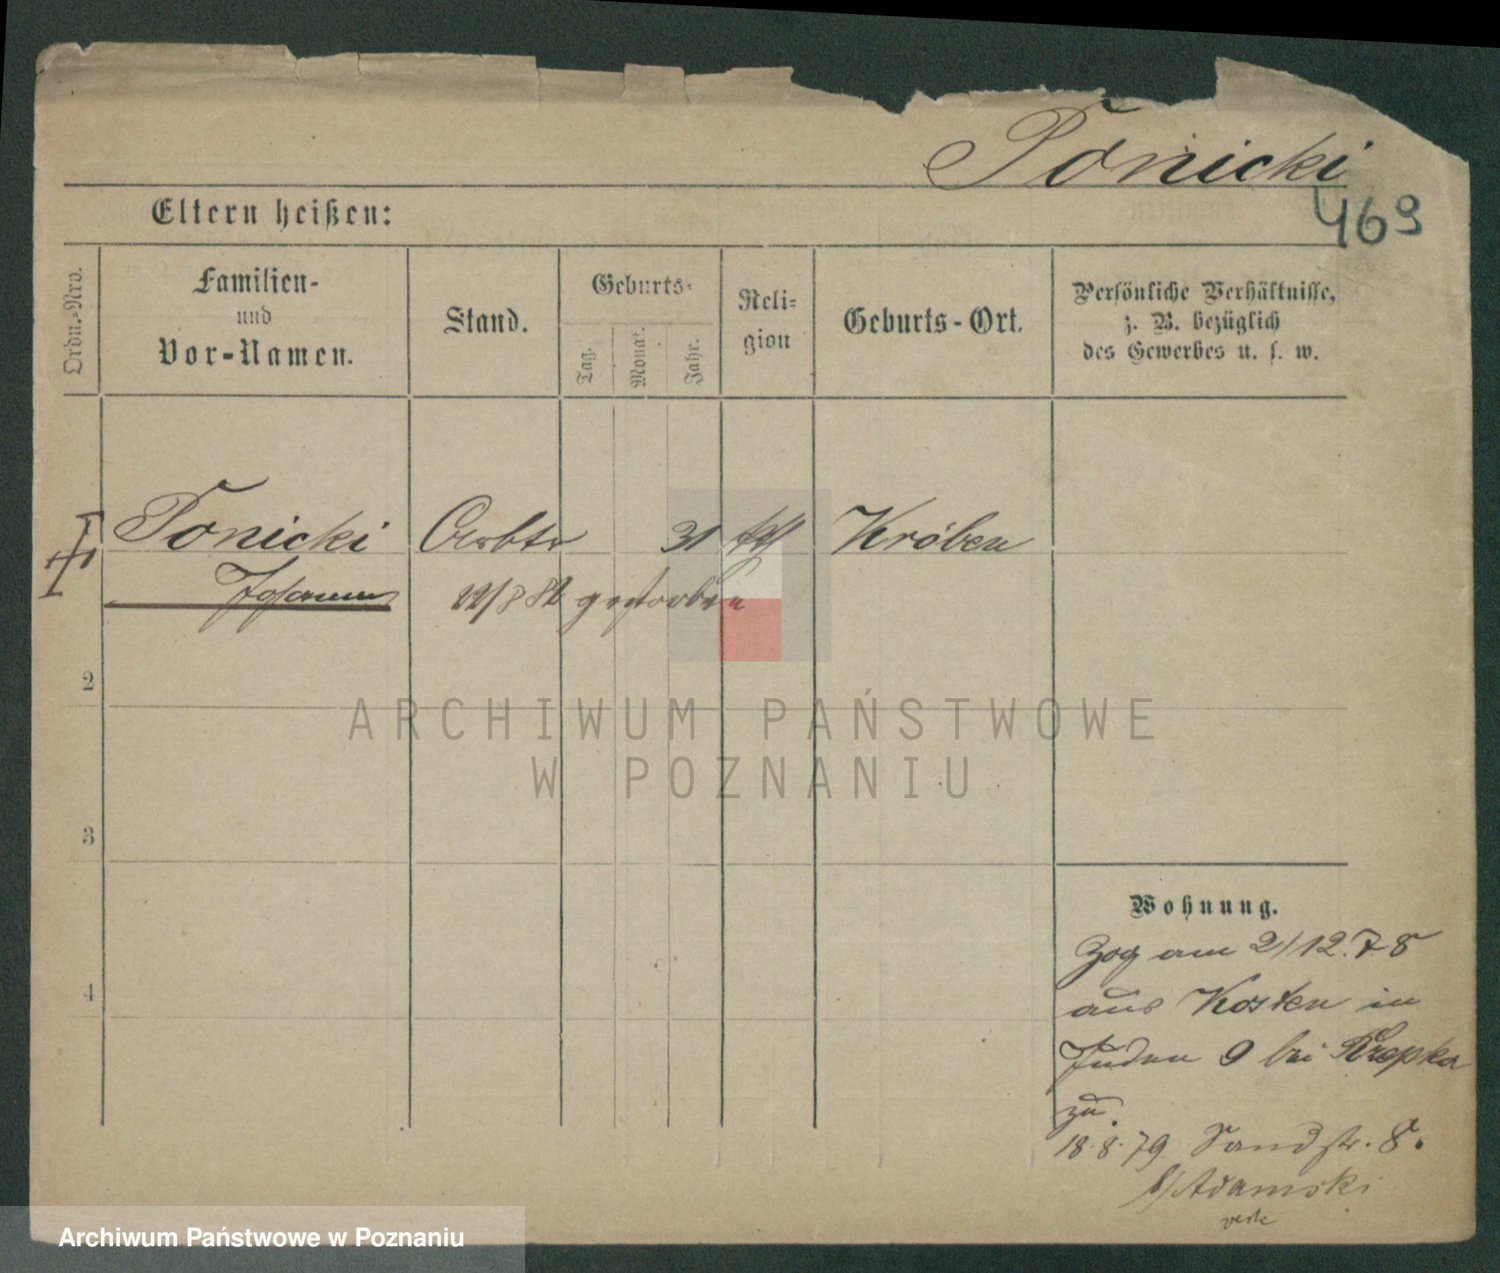 Tonicki
469
Eltern heißen:
Ordn.-Nro.
Familien-
und
Vor-Namen.
Stand.
Geburts-
Tag.
Monat.
Jahr.
Reli-
gion
Geburts-Ort.
Persönliche Verhältnisse,
z. B. bezüglich
des Gewerbes u. s. w.
Tonicki Arbtr 31 kth Kröben
Johann gestorben
2
3
4
ARCHIWUM PAŃSTWOWE
W POZNANIU
Wohnung.
Zog am 2/12.78
aus Kosten in
Juden 9 bei Krepka
zu.
18.8.79. Sandstr. 8.
b/Adamski
Archiwum Państwowe w Poznaniu